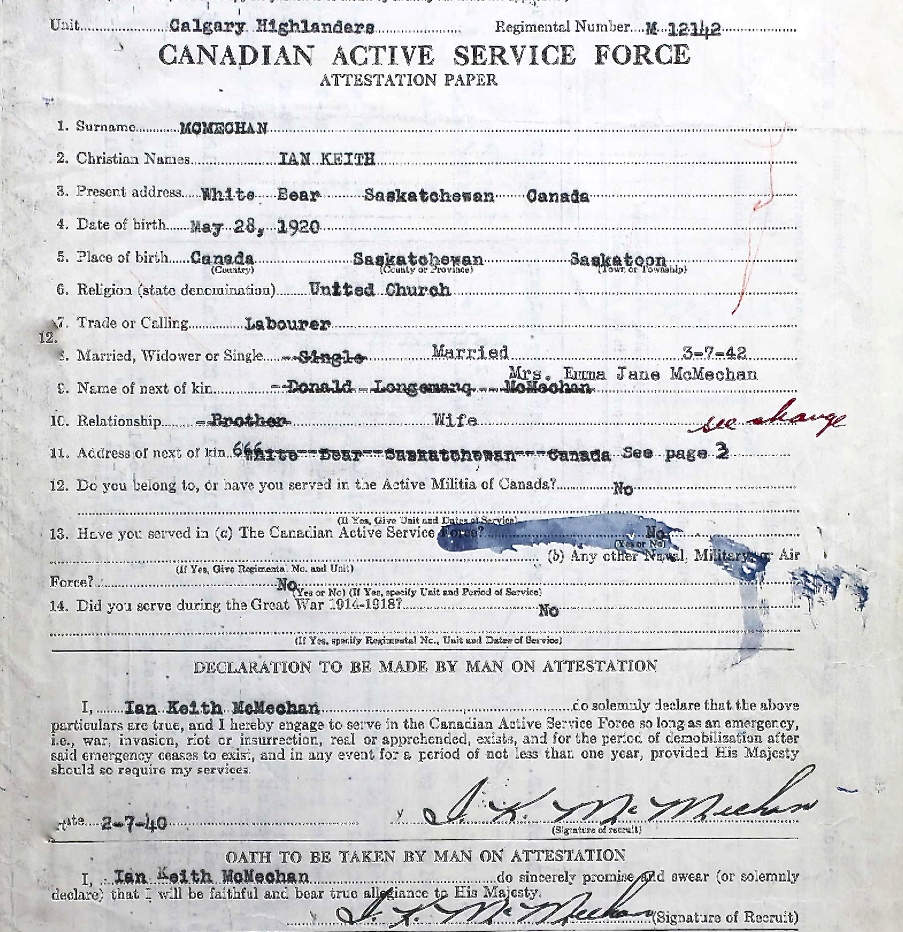 Unit Calgary Highlanders Regimental Number M 12142
CANADIAN ACTIVE SERVICE FORCE
ATTESTATION PAPER
1. Surname MCMECHAN
2. Christian Names IAN KEITH
3. Present address White Bear Saskatchewan Canada
4. Date of birth May 28, 1920
5. Place of birth Canada Saskatchewan Saskatoon
(Country) (County or Province) (Town or Township)
6. Religion (state denomination) United Church
7. Trade or Calling Labourer
12.
8. Married, Widower or Single Single Married 3-7-42
Mrs. Emma Jane McMechan
9. Name of next of kin Donald McMechan
10. Relationship Brother Wife see change
11. Address of next of kin White Bear Saskatchewan Canada See page 3
12. Do you belong to, or have you served in the Active Militia of Canada? No
(If Yes, Give Unit and Dates of Service)
13. Have you served in (a) The Canadian Active Service Force? No
(Yes or No)
(b) Any other Naval, Military or Air
(If Yes, Give Regimental No. and Unit)
Force? No
(Yes or No) (If Yes, specify Unit and Period of Service)
14. Did you serve during the Great War 1914-1918? No
(If Yes, specify Regimental No., Unit and Dates of Service)
DECLARATION TO BE MADE BY MAN ON ATTESTATION
I, Ian Keith McMechan do solemnly declare that the above
particulars are true, and I hereby engage to serve in the Canadian Active Service Force so long as an emergency,
i.e., war, invasion, riot or insurrection, real or apprehended, exists, and for the period of demobilization after
said emergency ceases to exist, and in any event for a period of not less than one year, provided His Majesty
should so require my services.
Date 2-7-40 I. K. McMechan
(Signature of recruit)
OATH TO BE TAKEN BY MAN ON ATTESTATION
I, Ian Keith McMechan do sincerely promise and swear (or solemnly
declare) that I will be faithful and bear true allegiance to His Majesty.
I. K. McMechan (Signature of Recruit)